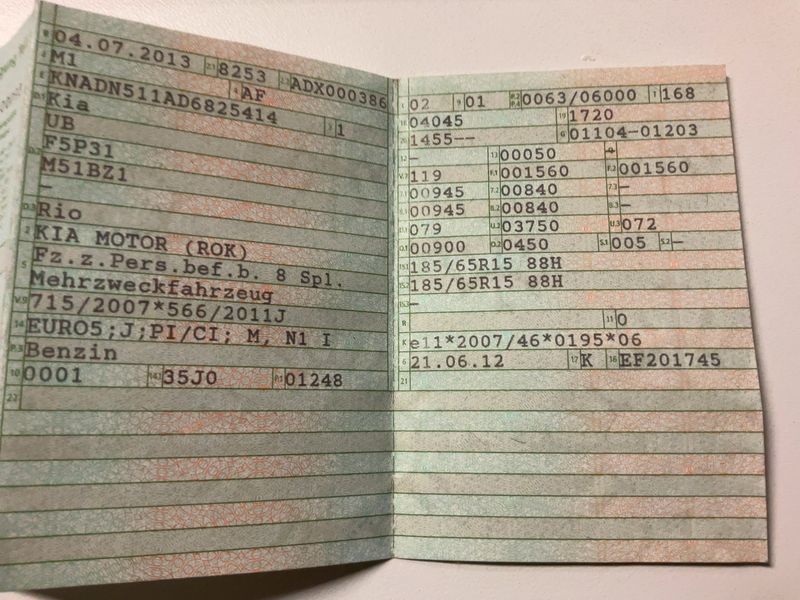 B 04.07.2013 2.1 8253 2.2 ADX000386
J M1 4 AF
E KNADN511AD6825414 3 1
D.1 Kia
UB
D.2 F5P31
M51BZ1
–
D.3 Rio
2 KIA MOTOR (ROK)
5 Fz.z.Pers.bef.b. 8 Spl.
Mehrzweckfahrzeug
V.9 715/2007*566/2011J
14 EURO5;J;PI/CI; M, N1 I
P.3 Benzin
10 0001 14.1 35J0 P.1 01248
22
L 02 9 01 P.2 P.4 0063/06000 T 168
18 04045 19 1720
20 1455-- G 01104-01203
12 – 13 00050 Q –
V.7 119 F.1 001560 F.2 001560
7.1 00945 7.2 00840 7.3 –
8.1 00945 8.2 00840 8.3 –
U.1 079 U.2 03750 U.3 072
O.1 00900 O.2 0450 S.1 005 S.2 –
15.1 185/65R15 88H
15.2 185/65R15 88H
15.3 –
R 11 0
K e11*2007/46*0195*06
6 21.06.12 17 K 16 EF201745
21